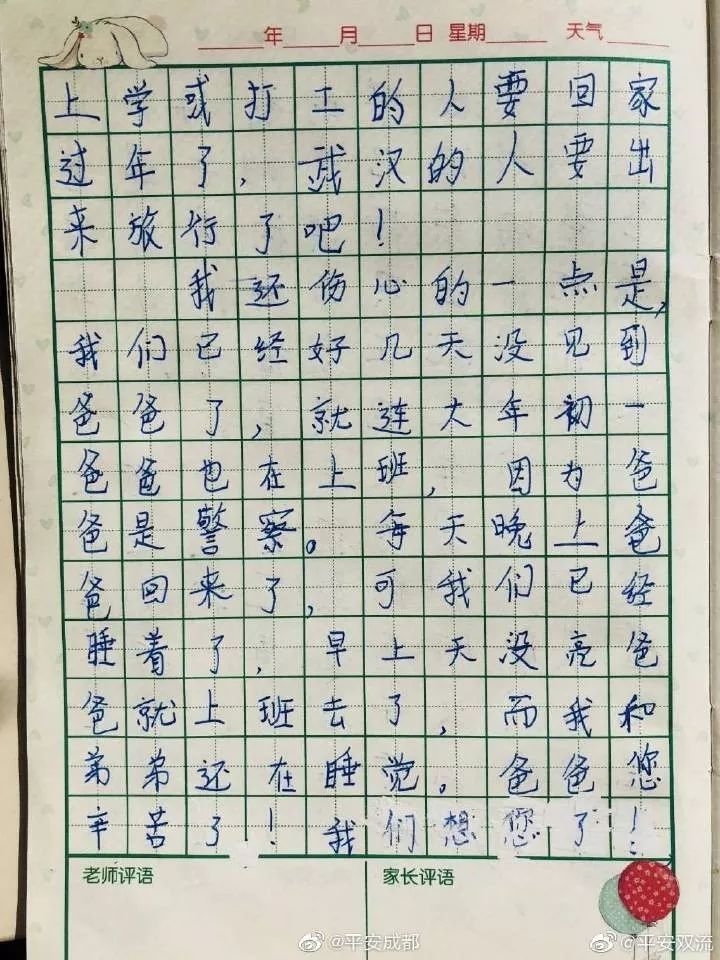 年 月 日 星期 天气
上学或打工的人要回家
过年了，武汉的人要出
来旅行了吧！
我还伤心的一点是，
我们已经好几天没见到
爸爸了，就连大年初一
爸爸也在上班，因为爸
爸是警察。每天晚上爸
爸回来了，可我们已经
睡着了，早上天没亮爸
爸就上班去了，而我和
弟弟还在睡觉。爸爸您
辛苦了！我们想您了！
老师评语 家长评语
@平安成都 @平安双流